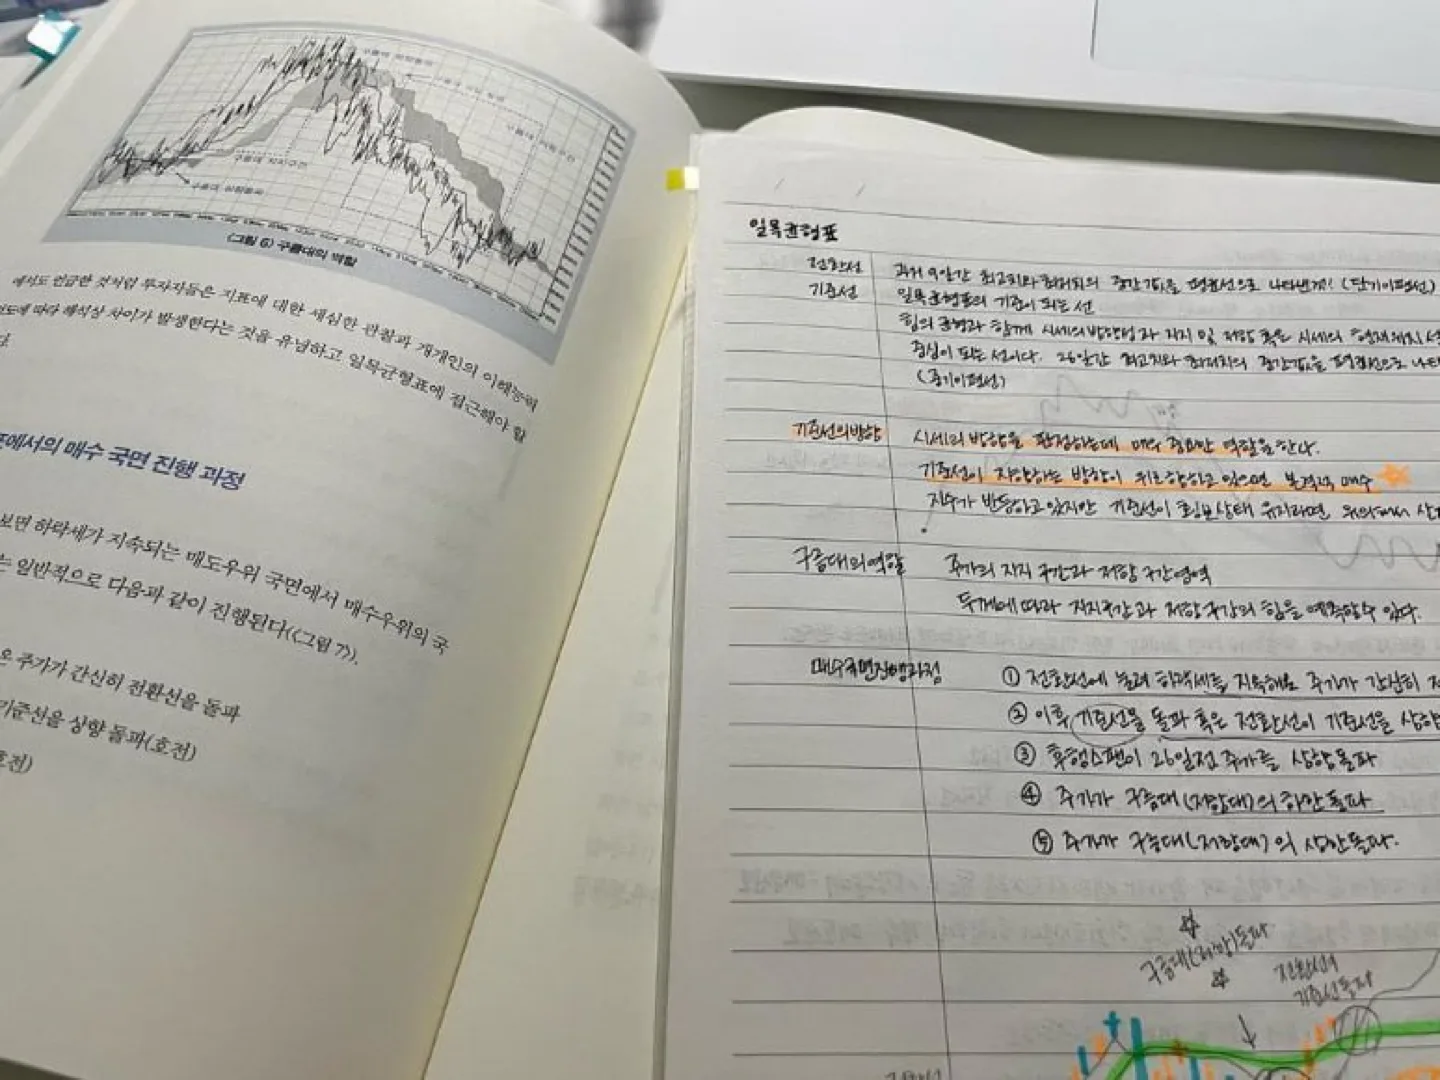 구름대 상향돌파
구름대 지지구간
구름대 저항구간
<그림 6> 구름대의 역할
에서도 언급한 것처럼 투자자들은 지표에 대한 세심한 관찰과 개개인의 이해능력
도에 따라 해석상 차이가 발생한다는 것을 유념하고 일목균형표에 접근해야 할
다.
표에서의 매수 국면 진행 과정
보면 하락세가 지속되는 매도우위 국면에서 매수우위의 국
는 일반적으로 다음과 같이 진행된다(<그림 7>).
온 주가가 간신히 전환선을 돌파
기준선을 상향 돌파(호전)
호전)
일목균형표
전환선 과거 9일간 최고치와 최저치의 중간값을 평균선으로 나타낸게! (단기이평선)
기준선 일목균형표의 기준이 되는 선
힘의 균형과 함께 시세의 방향성과 지지 및 저항 혹은 시세의 현재위치
중심이 되는 선이다. 26일간 최고치와 최저치의 중간값을 평균선으로 나타
(중기이평선)
기준선의방향 시세의 방향을 판정하는데 매우 중요한 역할을 한다.
기준선이 지향하는 방향이 위로향하고 있으면 본격적 매수
지수가 반등하고 있지만 기준선이 횡보상태 유지라면
구름대의역할 주가의 지지 구간과 저항 구간영역
두께에 따라 지지구간과 저항구간의 힘을 예측할수 있다.
매수국면진행과정 ① 전환선에 눌려 하락세를 지속해온 주가가 간신히 전
② 이후 기준선을 돌파 혹은 전환선이 기준선을 상향
③ 후행스팬이 26일전 주가를 상향돌파
④ 주가가 구름대(저항대)의 하단돌파
⑤ 주가가 구름대(저항대)의 상단돌파.
구름대(저항)돌파
전환선
기준선돌파